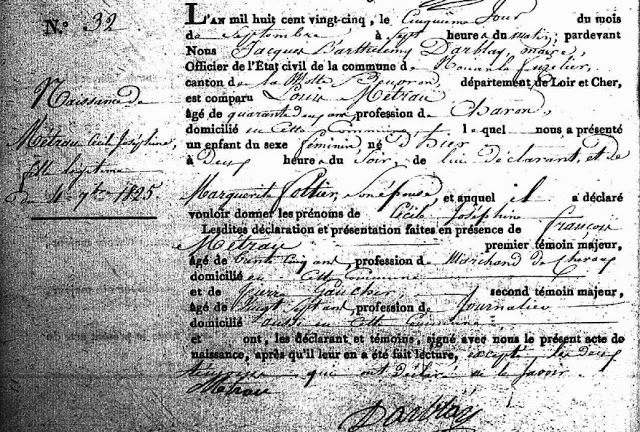 N.° 32
Naissance de
Métrau Cécile Joséphine,
fille légitime
du 4 7bre 1825.
L'AN mil huit cent vingt-cinq, le Cinquième Jour du mois
de Septembre à Sept heures du matin; pardevant
Nous Jacques Barthélemy Darblay, maire,
Officier de l'État civil de la commune de Nouan le fuzelier,
canton de La Motte Beuvron, département de Loir et Cher,
est comparu Louis Métrau
âgé de quarante deux ans, profession de Charon,
domicilié en Cette Commune lequel nous a présenté
un enfant du sexe féminin, né D'hier
à Deux heures du Soir, de lui déclarant, et de
Marguerite Son épouse, et auquel il a déclaré
vouloir donner les prénoms de Cécile Joséphine
Lesdites déclaration et présentation faites en présence de françois
Métrau premier témoin majeur,
âgé de ans, profession de Marchand de Chevaux
domicilié en Cette Commune
et de Pierre Gaucher second témoin majeur,
âgé de Vingt Sept ans, profession de Journalier
domicilié aussi en Cette Commune
et ont, les déclarant et témoins, signé avec nous le présent acte de
naissance, après qu'il leur en a été fait lecture, excepté les deux
témoins qui ont déclaré ne le Savoir.
Métrau
Darblay